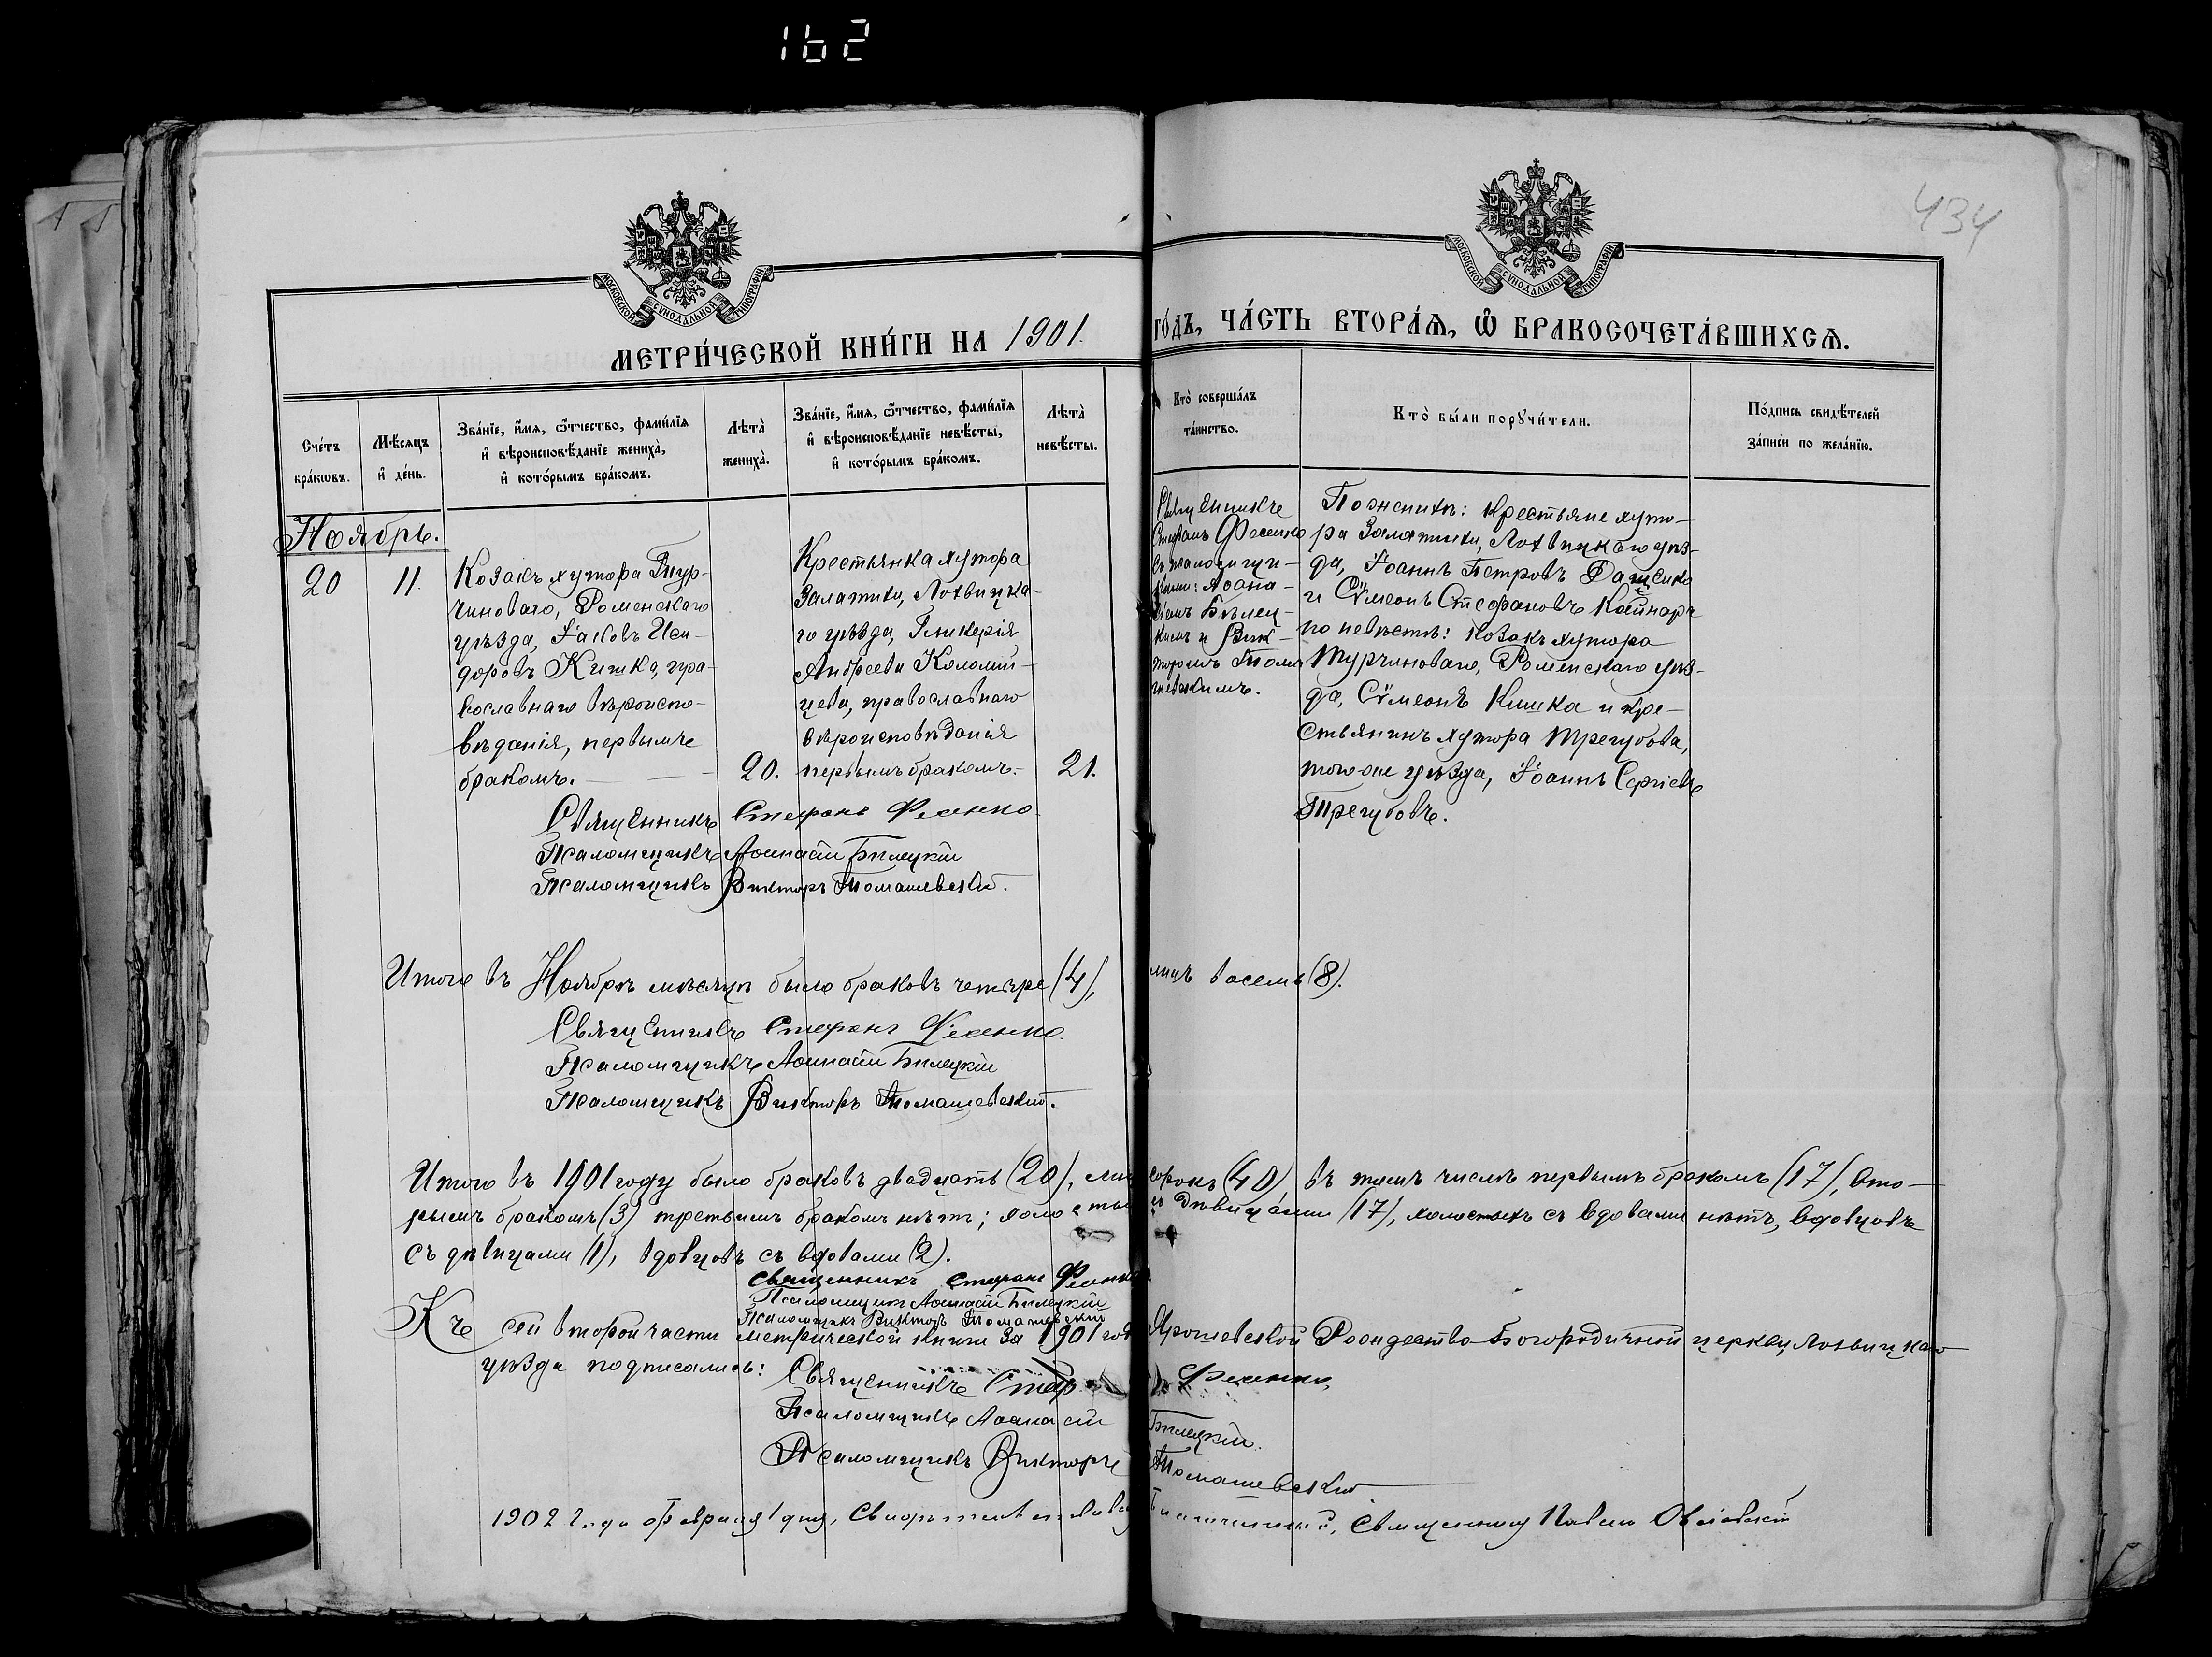 162
434
МОСКОВСКОЙ СѴНОДАЛЬНОЙ ТИПОГРАФІИ
МОСКОВСКОЙ СѴНОДАЛЬНОЙ ТИПОГРАФІИ
МЕТРИ́ЧЕСКОЙ КНИ́ГИ НА 1901.
ГО́ДЪ, ЧА́СТЬ ВТОРА́Ѧ, Ѽ БРАКОСОЧЕТА́ВШИХСѦ.
Сче́тъ
бра́кѡвъ.
Мѣ́сѧцъ
и҆ де́нь.
Зва́нїе, и҆́мѧ, ѻ҆́тчество, фами́лїѧ
и҆ вѣроисповѣ́данїе жениха̀,
и҆ кото́рымъ бра́комъ.
Лѣта̀
жениха̀.
Зва́нїе, и҆́мѧ, ѻ҆́тчество, фами́лїѧ
и҆ вѣроисповѣ́данїе невѣ́сты,
и҆ кото́рымъ бра́комъ.
Лѣта̀
невѣ́сты.
Кто̀ соверша́лъ
та́инство.
Кто̀ бы́ли порꙋчи́тели.
По́дпись свидѣ́телей
за́писи по жела́нїю.
Ноябрь.
20
11.
Козакъ хутора Тур-
чиноваго, Роменскаго
уѣзда, Іаковъ Иси-
доровъ Кишка, пра-
вославнаго вѣроиспо-
вѣданія, первымъ
бракомъ.
20.
Крестьянка хутора
Залатихи, Лохвицка-
го уѣзда, Гликерія
Андреева Коломій-
цева, православнаго
вѣроисповѣданія
первымъ бракомъ.
21.
Священникъ
Стефанъ Фесенко
съ псаломщи-
ками: Аѳана-
сіемъ Бѣлец-
кимъ и Вик-
торомъ Тома-
шевскимъ.
По женихѣ: крестьяне хуто-
ра Залатихи, Лохвицкаго уѣз-
да, Іоаннъ Петровъ Дащенко
и Сѵмеонъ Стефановъ
по невѣстѣ: козакъ хутора
Турчиноваго, Роменскаго уѣз-
да, Сѵмеонъ Кишка и кре-
стьянинъ хутора Трегубова,
того же уѣзда, Іоаннъ Сергіевъ
Трегубовъ.
Священникъ Стефанъ Фесенко.
Псаломщикъ Аѳанасій Бѣлецкій
Псаломщикъ Викторъ Томашевскій.
Итого въ Ноябрѣ мѣсяцѣ было браковъ четыре (4), лицъ восемь (8).
Священникъ Стефанъ Фесенко.
Псаломщикъ Аѳанасій Бѣлецкій
Псаломщикъ Викторъ Томашевскій.
Итого въ 1901 году было браковъ двадцать (20), лицъ сорокъ (40) въ томъ числѣ первымъ бракомъ (17), вто-
рымъ бракомъ (3) третьимъ бракомъ нѣтъ; холостыхъ съ дѣвицами (17), холостыхъ съ вдовами нѣтъ, вдовцовъ
съ дѣвицами (1), вдовцовъ съ вдовами (2).
Священникъ Стефанъ Фесенко
Псаломщикъ Аѳанасій Бѣлецкій
Псаломщикъ Викторъ Томашевскій
Къ сей второй части метрической книги за 1901 годъ Ярошевской Рождество-Богородичной церкви, Лохвицкаго
уѣзда подписались: Священникъ Стефанъ Фесенко,
Псаломщикъ Аѳанасій Бѣлецкій.
Псаломщикъ Викторъ Томашевскій
1902 года Февраля 1 дня, Священникъ Павелъ